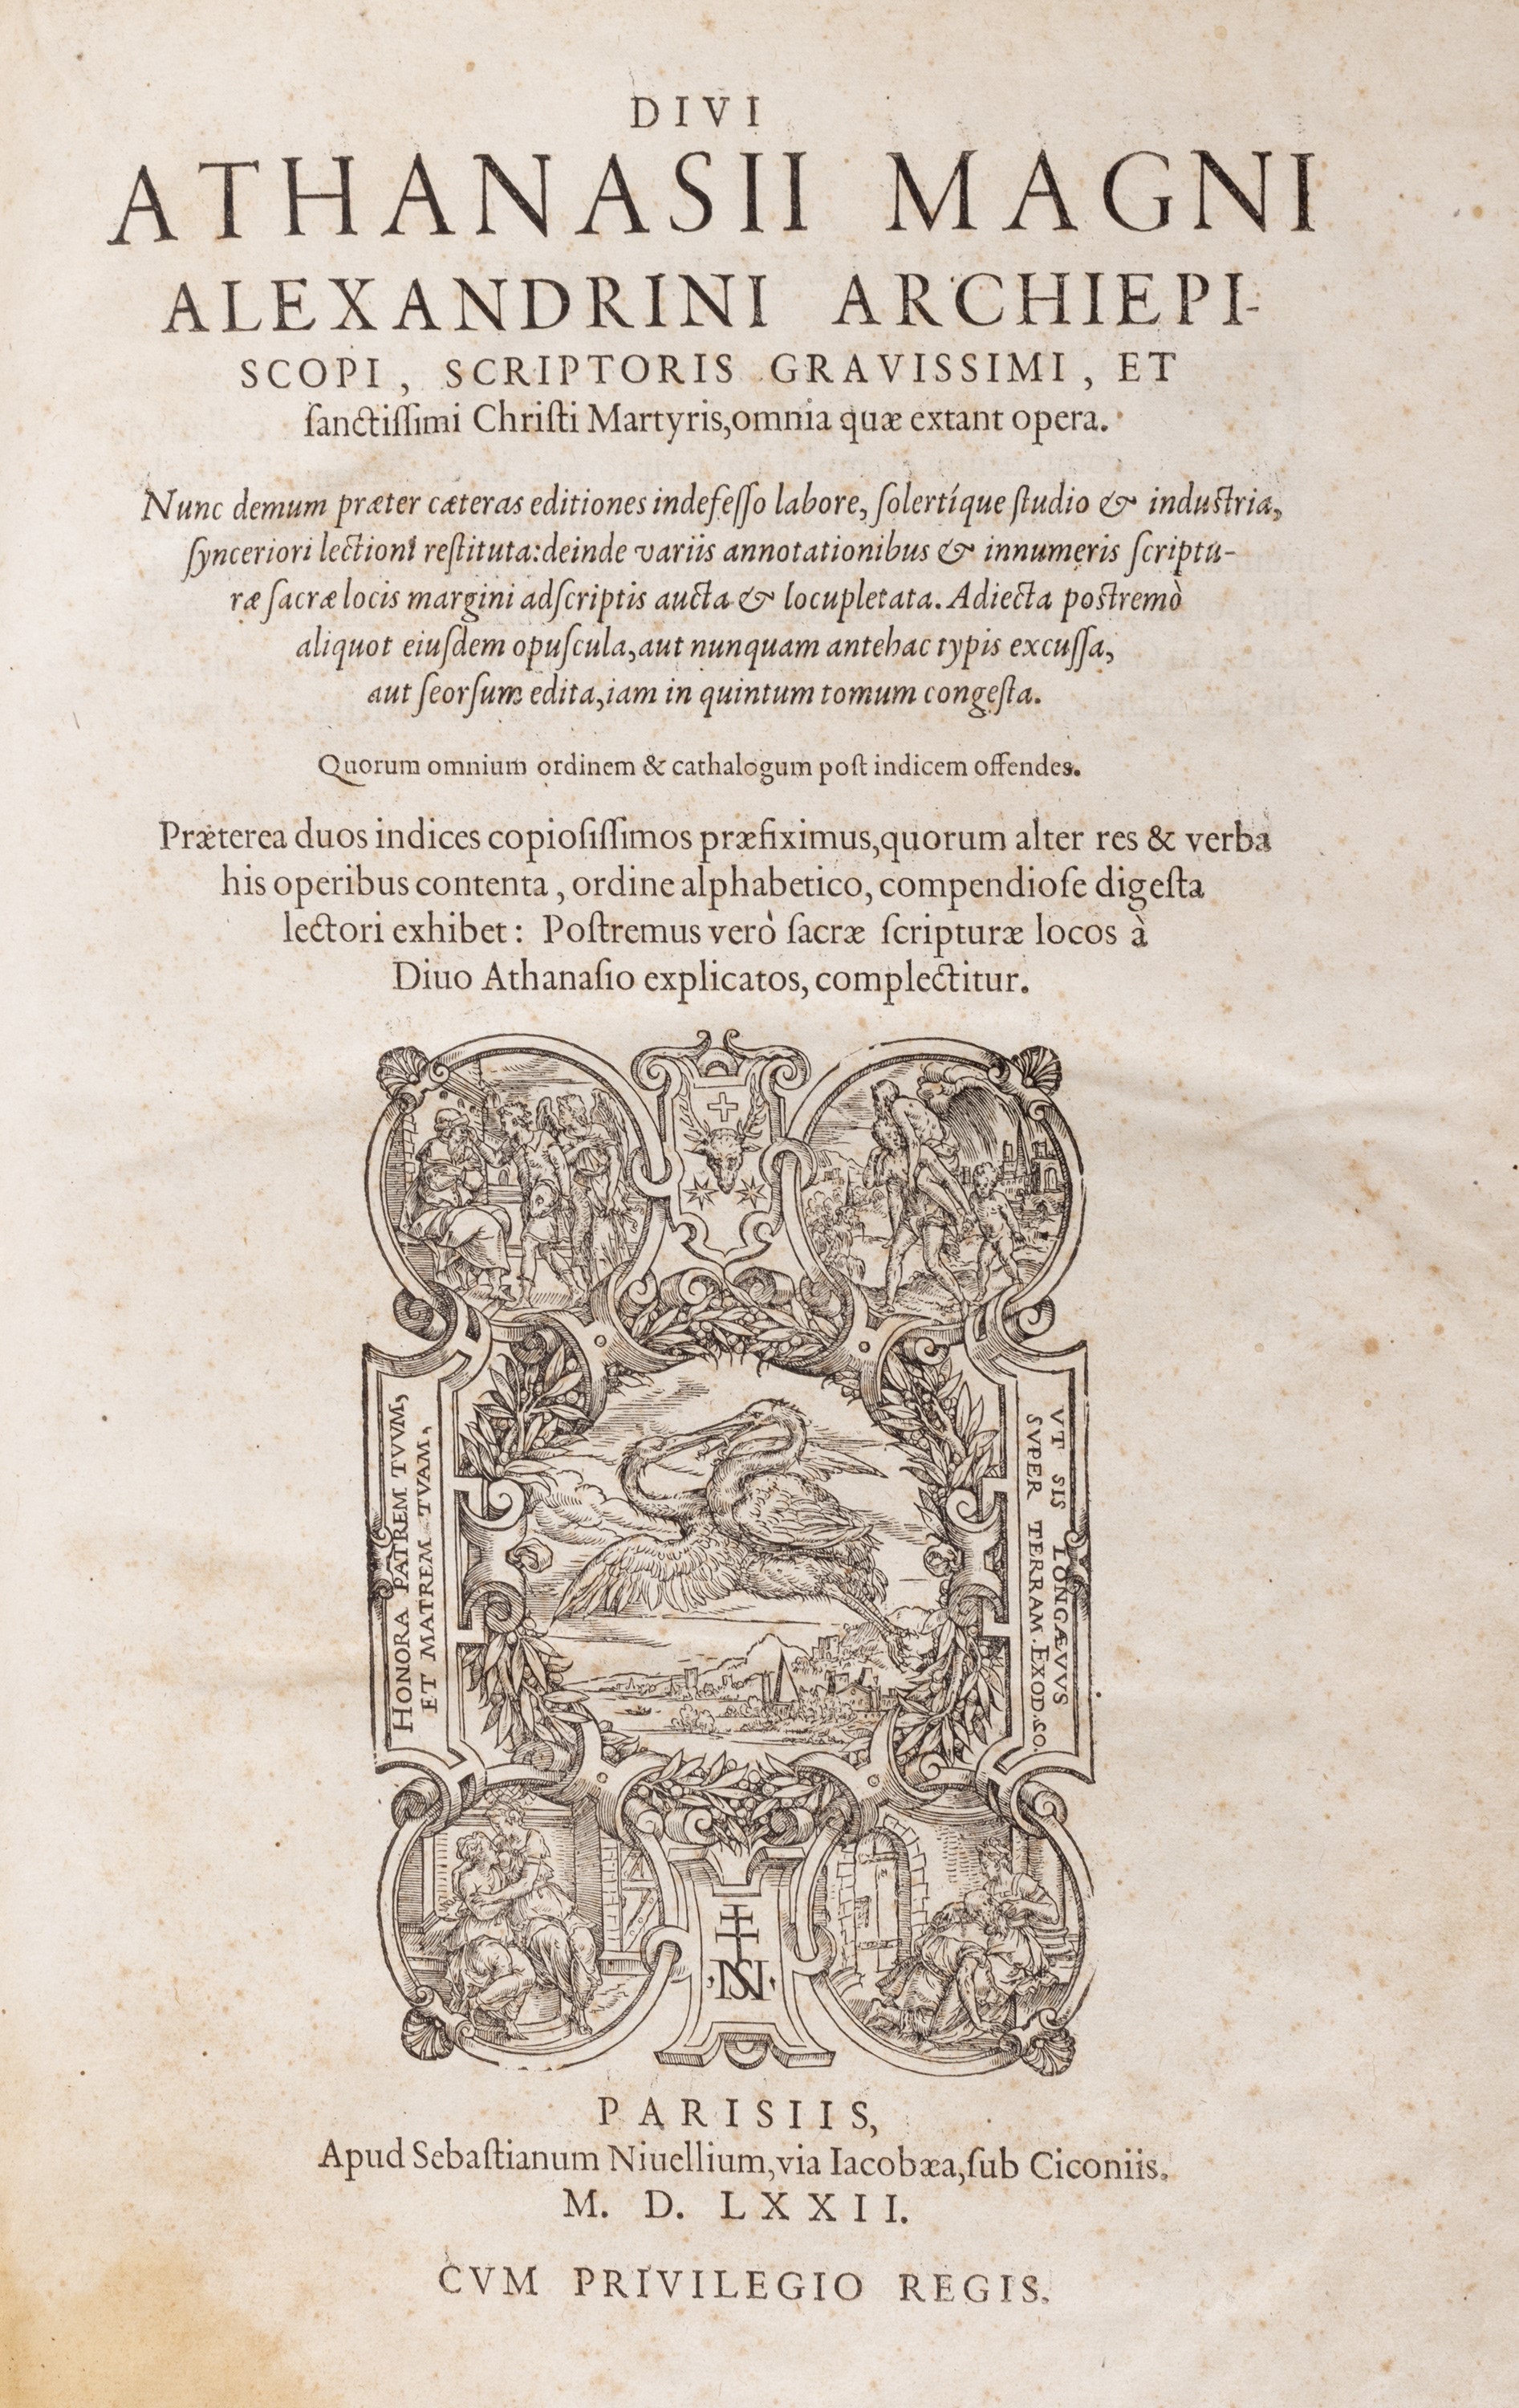 DIVI
ATHANASII MAGNI
ALEXANDRINI ARCHIEPI-
SCOPI, SCRIPTORIS GRAVISSIMI, ET
ſanctiſſimi Chriſti Martyris,omnia quæ extant opera.
Nunc demum præter cæteras editiones indefeſſo labore, ſolertíque ſtudio & induſtria,
ſynceriori lectioni reſtituta:deinde variis annotationibus & innumeris ſcriptu-
ræ ſacræ locis margini adſcriptis aucta & locupletata. Adiecta poſtremò
aliquot eiuſdem opuſcula,aut nunquam antehac typis excuſſa,
aut ſeorſum edita,iam in quintum tomum congeſta.
Quorum omnium ordinem & cathalogum poſt indicem offendes.
Præterea duos indices copioſiſſimos præfiximus,quorum alter res & verba
his operibus contenta, ordine alphabetico, compendioſe digeſta
lectori exhibet: Poſtremus verò ſacræ ſcripturæ locos à
Diuo Athanaſio explicatos, complectitur.
HONORA PATREM TVVM,
ET MATREM TVAM,
VT SIS LONGÆVVS
SVPER TERRAM. EXOD. 20.
PARISIIS,
Apud Sebaſtianum Niuellium,via Iacobæa,ſub Ciconiis.
M. D. LXXII.
CVM PRIVILEGIO REGIS.